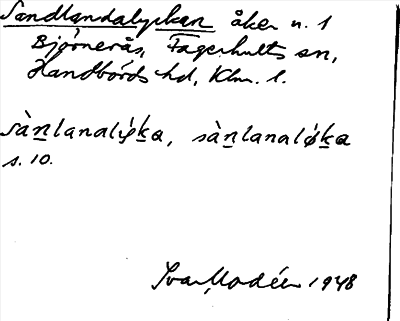 Sandlandalyckan åker n. 1
Björnerås, Fagerhults sn,
Handbörds hd, Klm. l.
sàn̲lanalýk̲a, sàn̲lanalǿk̲a
s. 10.
Ivar Modéer 1948